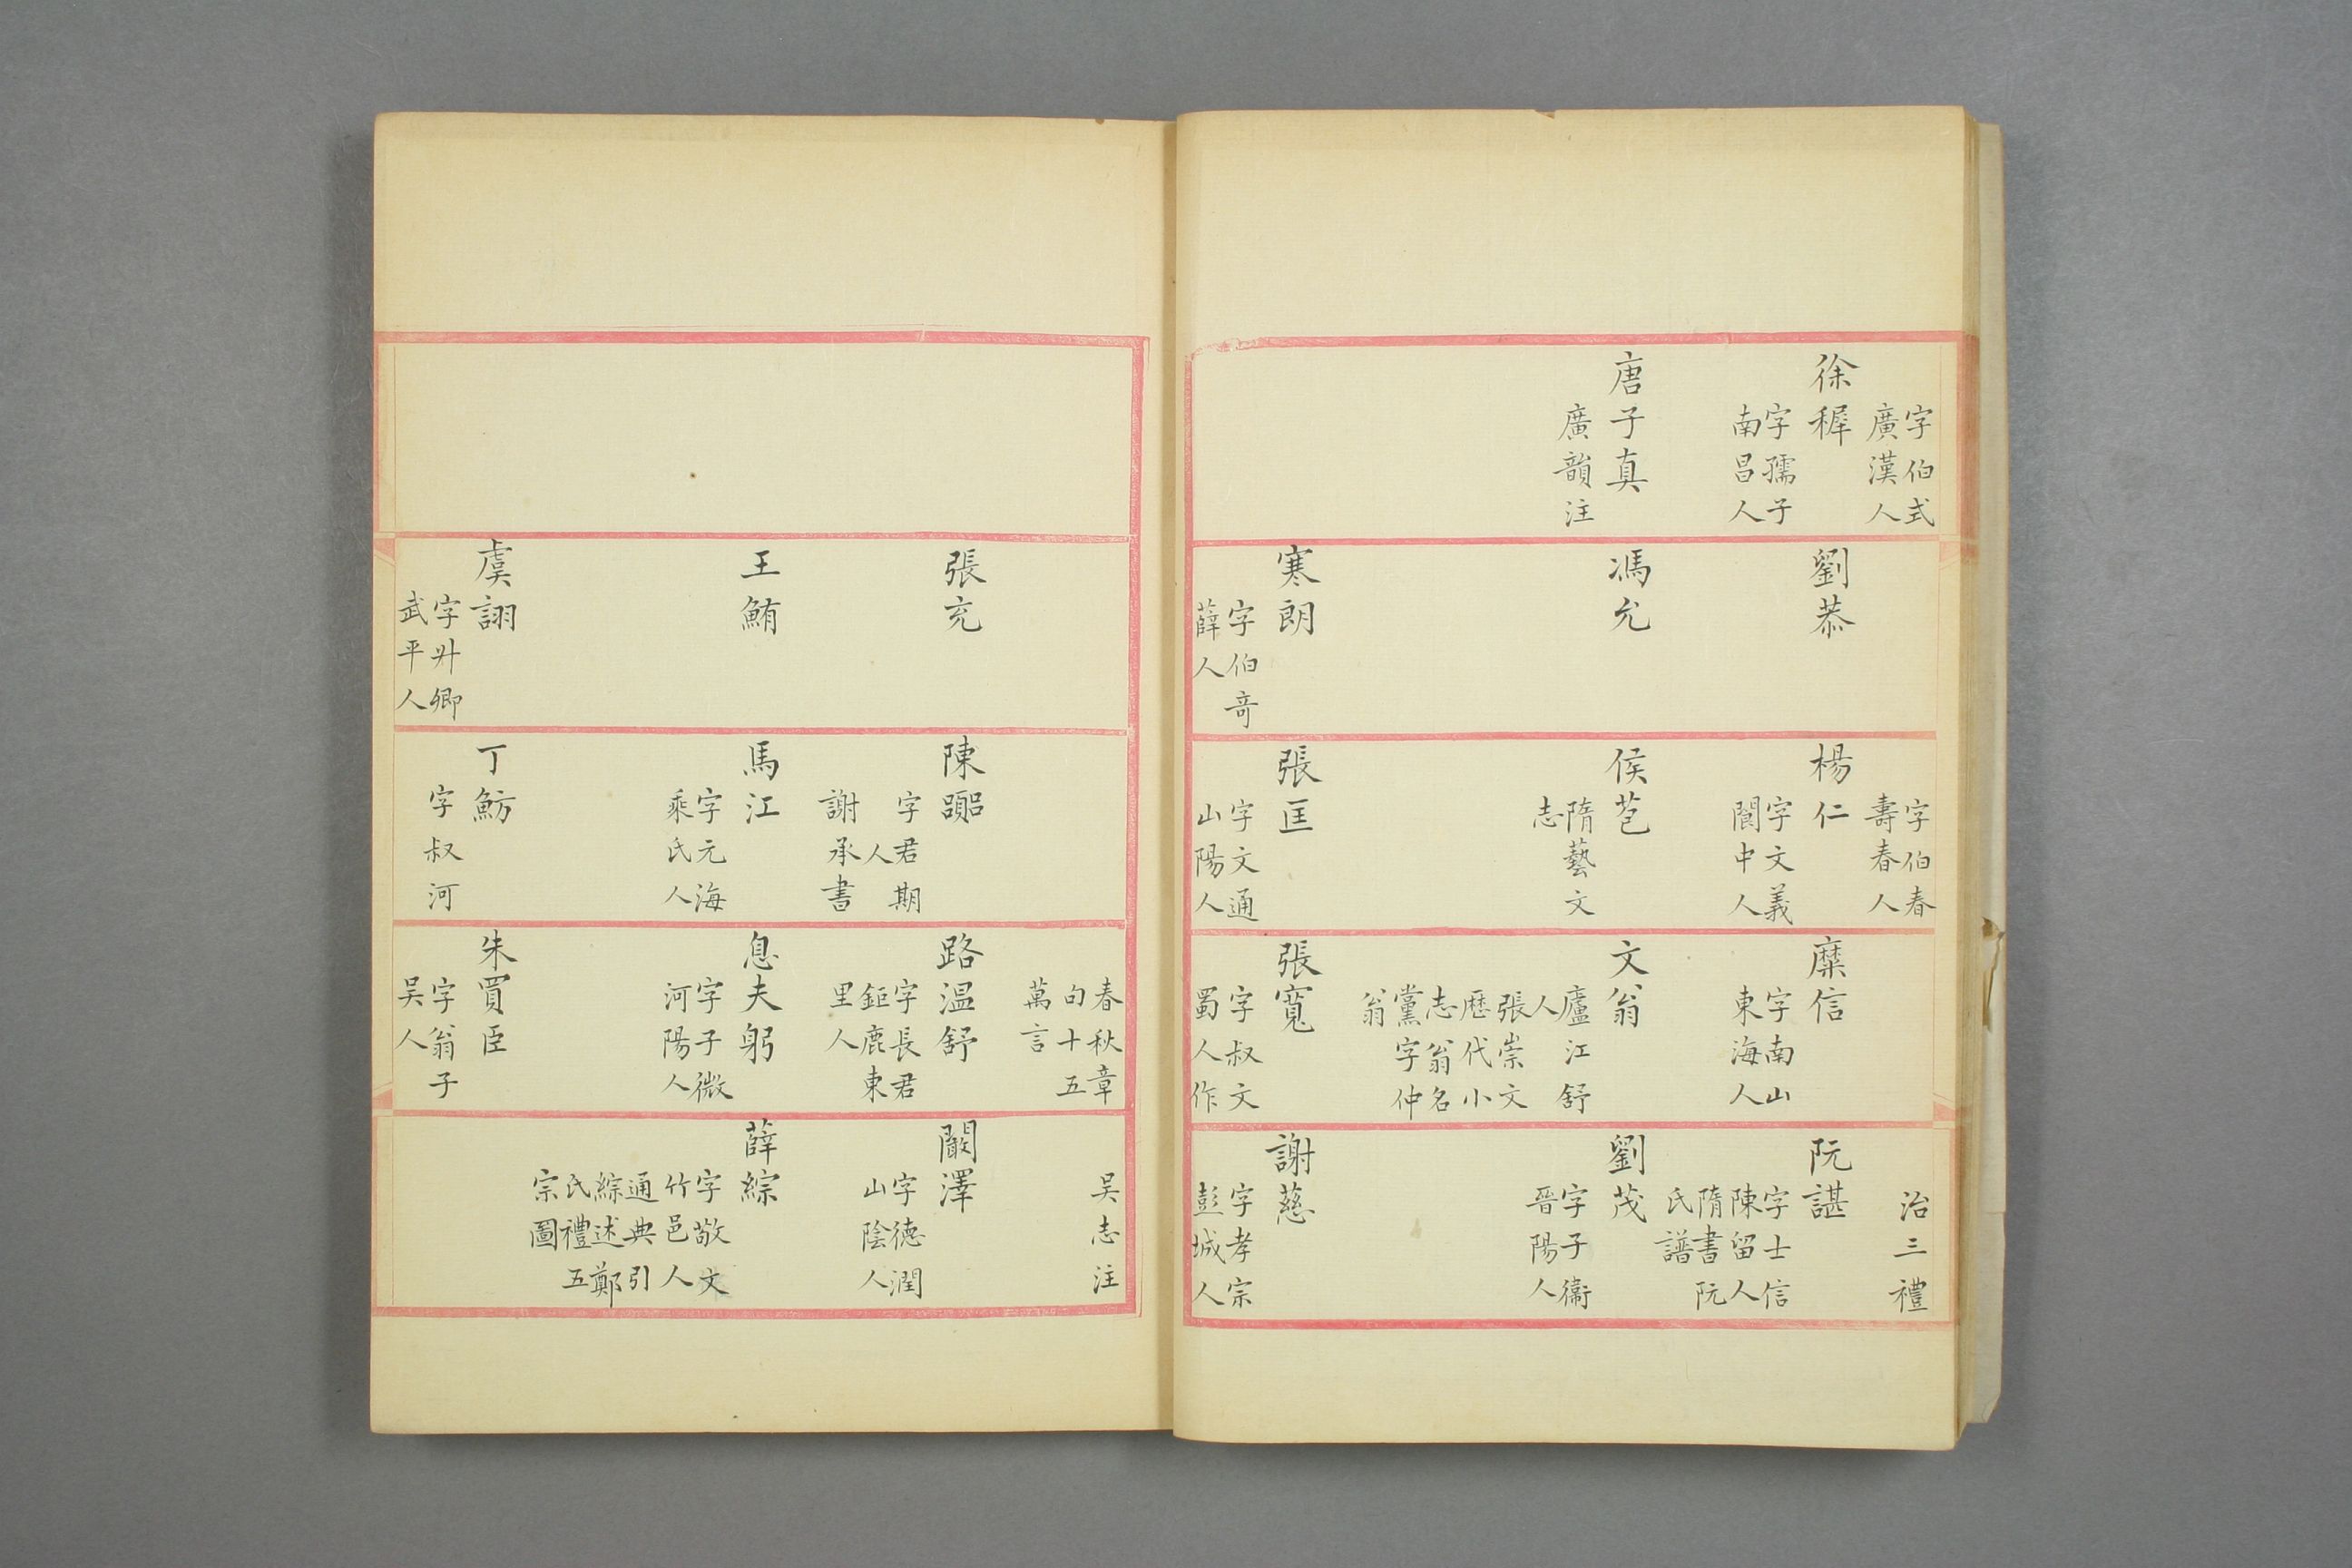 字伯式
廣漢人
徐穉
字孺子
南昌人
唐子真
廣韻注
劉恭
馮允
寒朗
字伯奇
薛人
字伯春
壽春人
楊仁
字文義
閬中人
侯芭
隋藝文
志
張匡
字文通
山陽人
糜信
字南山
東海人
文翁
廬江舒
人
張崇文
歷代小
志翁名
黨字仲
翁
張寬
字叔文
蜀人作
治三禮
阮諶
字士信
陳留人
隋書阮
氏譜
劉茂
字子衞
晉陽人
謝慈
字孝宗
彭城人
張充
王鮪
虞詡
字升卿
武平人
陳
字君期
人
謝承書
馬江
字元海
乘氏人
丁魴
字叔河
春秋章
句十五
萬言
路温舒
字長君
鉅鹿東
里人
息夫躬
字子微
河陽人
朱買臣
字翁子
吴人
吴志注
闞澤
字德潤
山陰人
薛綜
字敬文
竹邑人
通典引
綜述鄭
氏禮五
宗圖